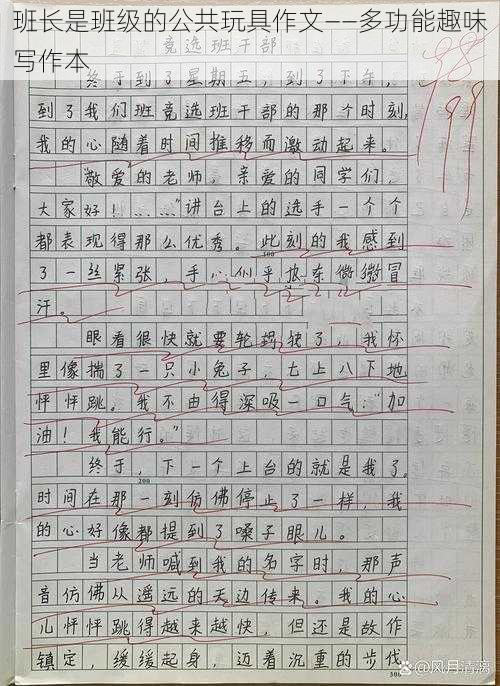 班长是班级的公共玩具作文——多功能趣味
写作本
竞选班干部
98
99
终于到了星期五，到了下午，
到了我们班竞选班干部的那个时刻，
我的心随着时间推移而激动起来。
敬爱的老师，亲爱的同学们，
大家好！……"讲台上的选手一个个
都表现得那么优秀。此刻的我感到
100
了一丝紧张，手心似乎也在微微冒
汗。
眼看很快就要轮到我了，我怀
里像揣了一只小兔子，七上八下地
怦怦跳。我不由得深吸一口气："加
油！我能行。"
终于，下一个上台的就是我了。
200
时间在那一刻仿佛停止了一样，我
的心好像都提到了嗓子眼儿。
当老师喊到我的名字时，那声
音仿佛从遥远的天边传来。我的心
儿怦怦跳得越来越快，但还是故作
镇定，缓缓起身，迈着沉重的步伐
300
@风月清漓